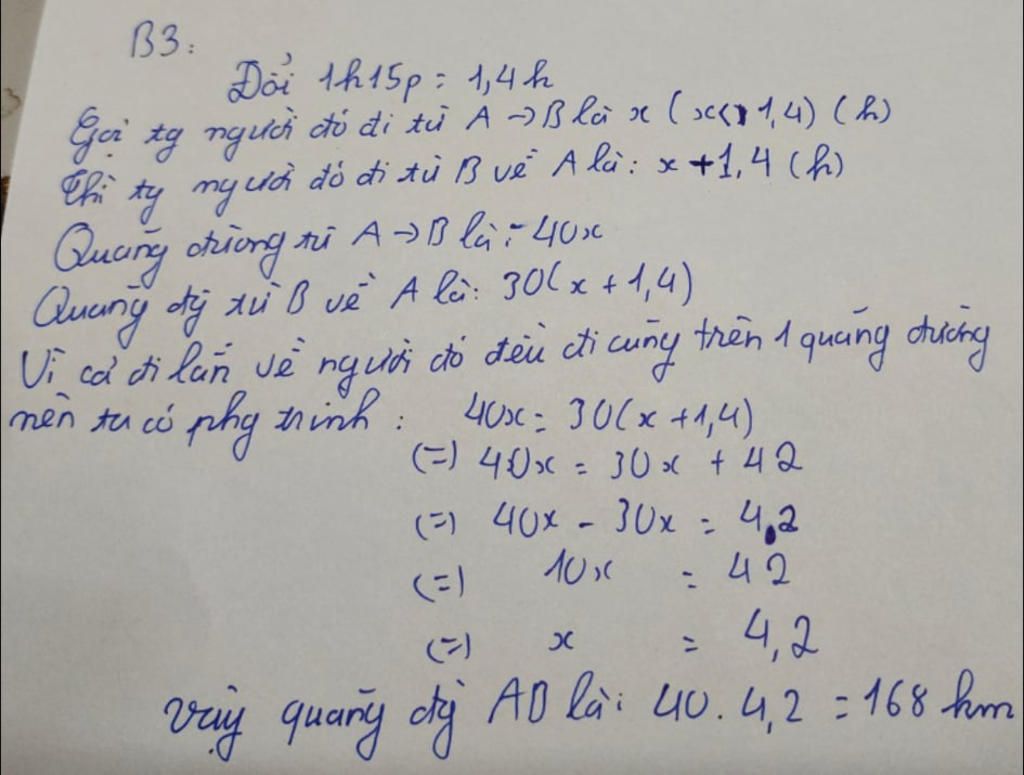 B3:
Đổi 1h15p = 1,4h
Gọi tg người đó đi từ A → B là x (x<1,4) (h)
Thì tg người đó đi từ B về A là: x + 1,4 (h)
Quãng đường từ A → B là: 40x
Quãng đg từ B về A là: 30(x + 1,4)
Vì cả đi lẫn về người đó đều đi cùng trên 1 quãng đường
nên ta có phg trình: 40x = 30(x + 1,4)
(=) 40x = 30x + 42
(=) 40x - 30x = 4,2
(=) 10x = 42
(=) x = 4,2
vậy quãng đg AB là: 40. 4,2 = 168 km